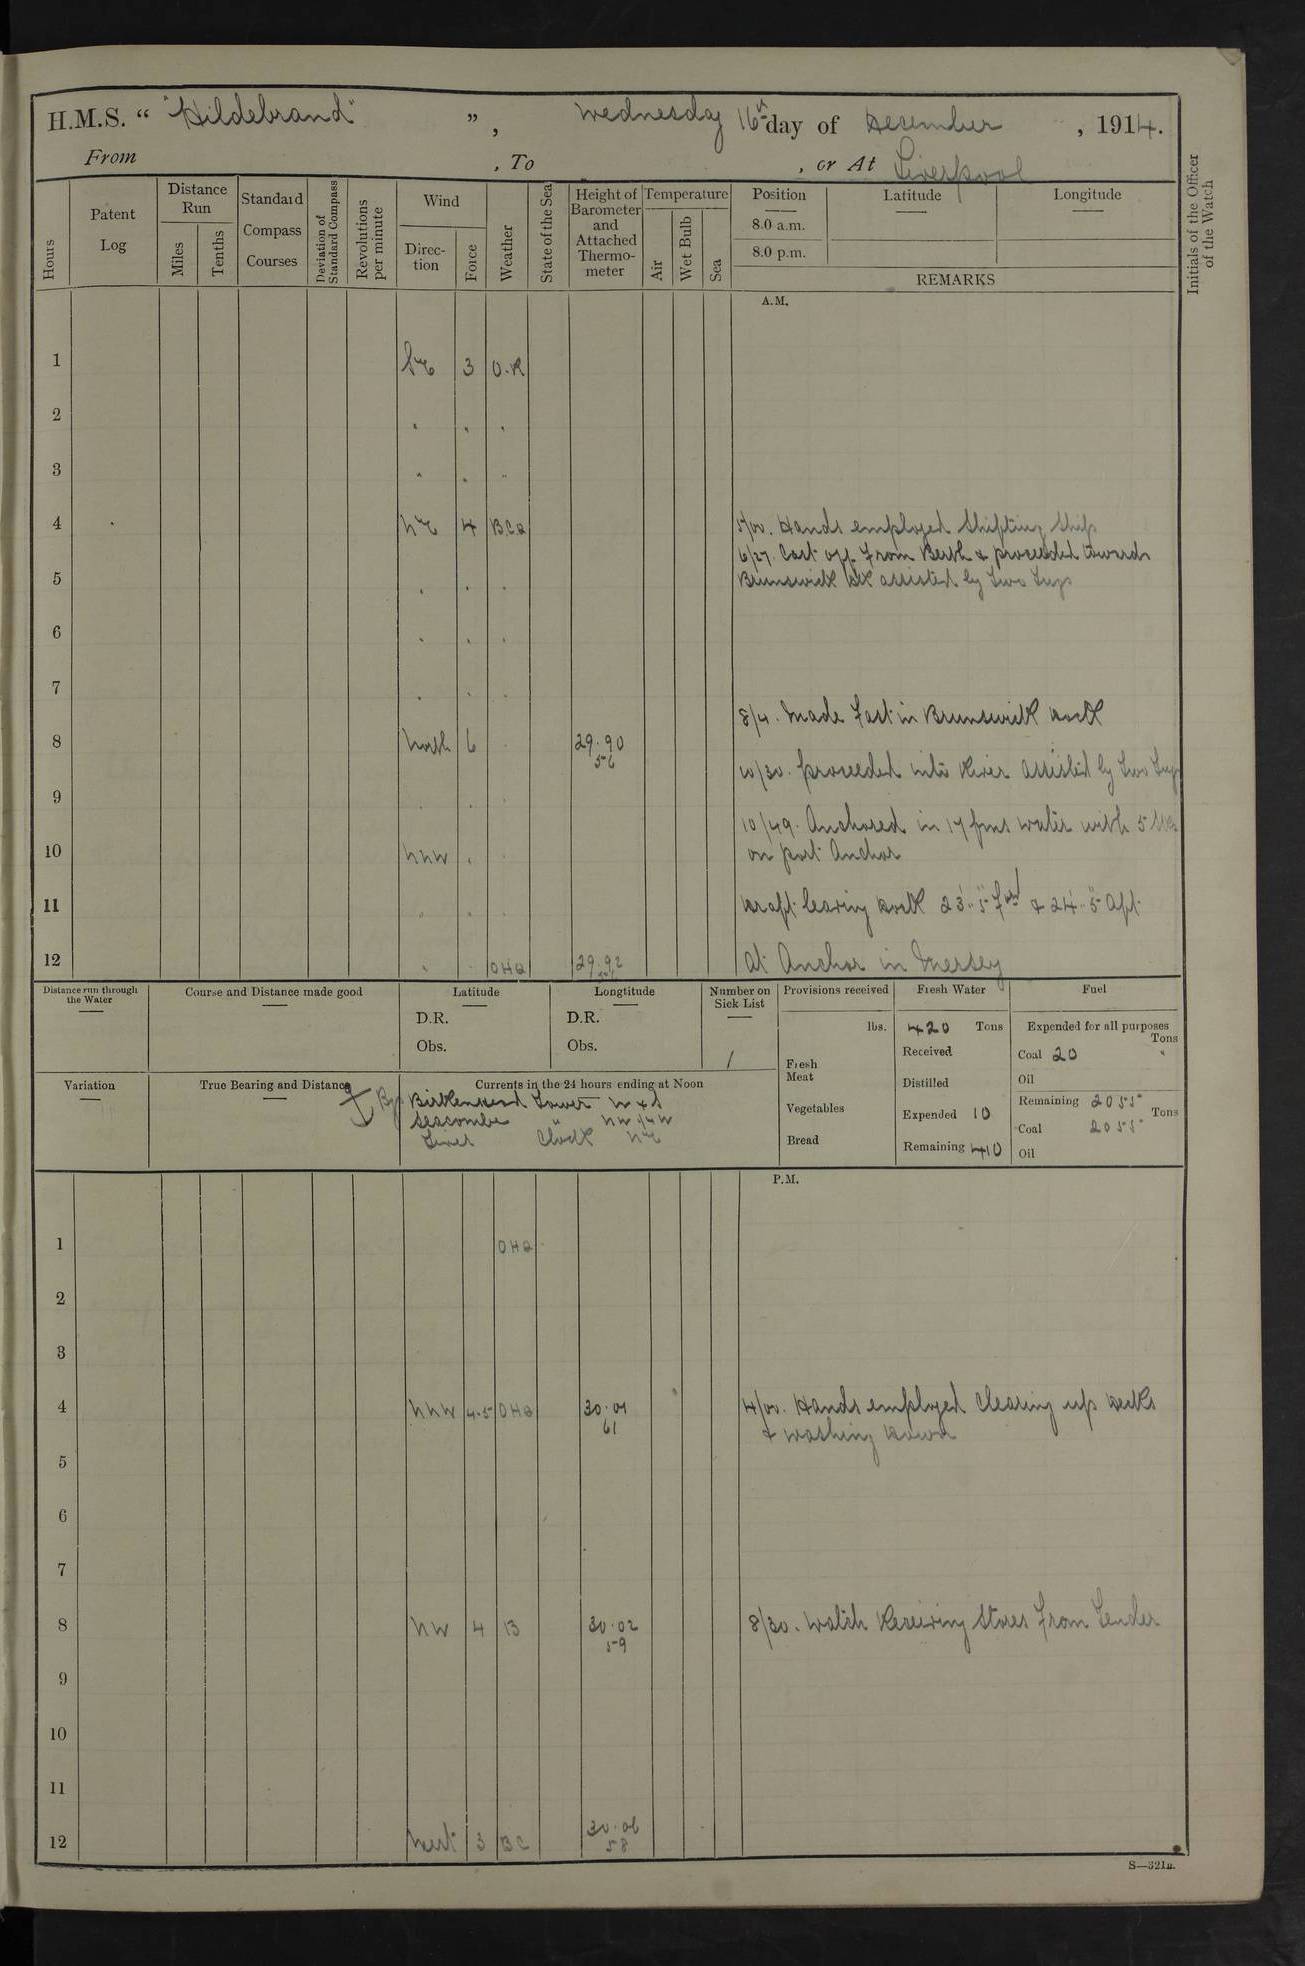 H.M.S. “ "Hildebrand" ” , Wednesday 16th day of December , 1914.
From , To , or At Liverpool
Hours
Patent Log
Distance Run
Miles
Tenths
Standard Compass Courses
Deviation of Standard Compass
Revolutions per minute
Wind
Direc-tion
Force
Weather
State of the Sea
Height of Barometer and Attached Thermo-meter
Temperature
Air
Wet Bulb
Sea
Position
8.0 a.m.
8.0 p.m.
Latitude
Longitude
REMARKS
Initials of the Officer of the Watch
A.M.
1 NE 3 O.R
2 " " "
3 " " "
4 NE 4 BCQ
5/00. Hands employed Shifting Ship
6/27. Cast off from Berth & proceeded towards
5 " " "
Brunswick Dk assisted by Two Tugs
6 " " "
7 " " "
8/4. Made fast in Brunswick Dock
8 North 6 " 29.90 56
10/30. Proceeded into River assisted by Two Tugs
9 " " "
10/49. Anchored in 17 fms water with 5
10 NNW " "
on port Anchor
11 " " "
Draft leaving Dock 23'..5" Fwd & 24'..5" Aft
12 " " OHQ 29.92
At Anchor in Mersey
Distance run through the Water
Course and Distance made good
Latitude
D.R.
Obs.
Longtitude
D.R.
Obs.
Number on Sick List
1
Provisions received
lbs.
Fresh Meat
Vegetables
Bread
Fresh Water
420 Tons
Received
Distilled
Expended 10
Remaining 410
Fuel
Expended for all purposes
Tons
Coal 20 "
Oil
Remaining 2055
Tons
Coal 2055
Oil
Variation
True Bearing and Distance
Currents in the 24 hours ending at Noon
Birkenhead Tower W x S
Seacombe " NW
Liver Clock NE
P.M.
1 OHQ
2
3
4 NNW 4.5 OHQ 30.01 61
4/00. Hands employed Clearing up Decks
& Washing Down
5
6
7
8 NW 4 B 30.02 59
8/30. Watch Receiving Stores from Tender
9
10
11
12 West 3 BC 30.06 58
S—321a.